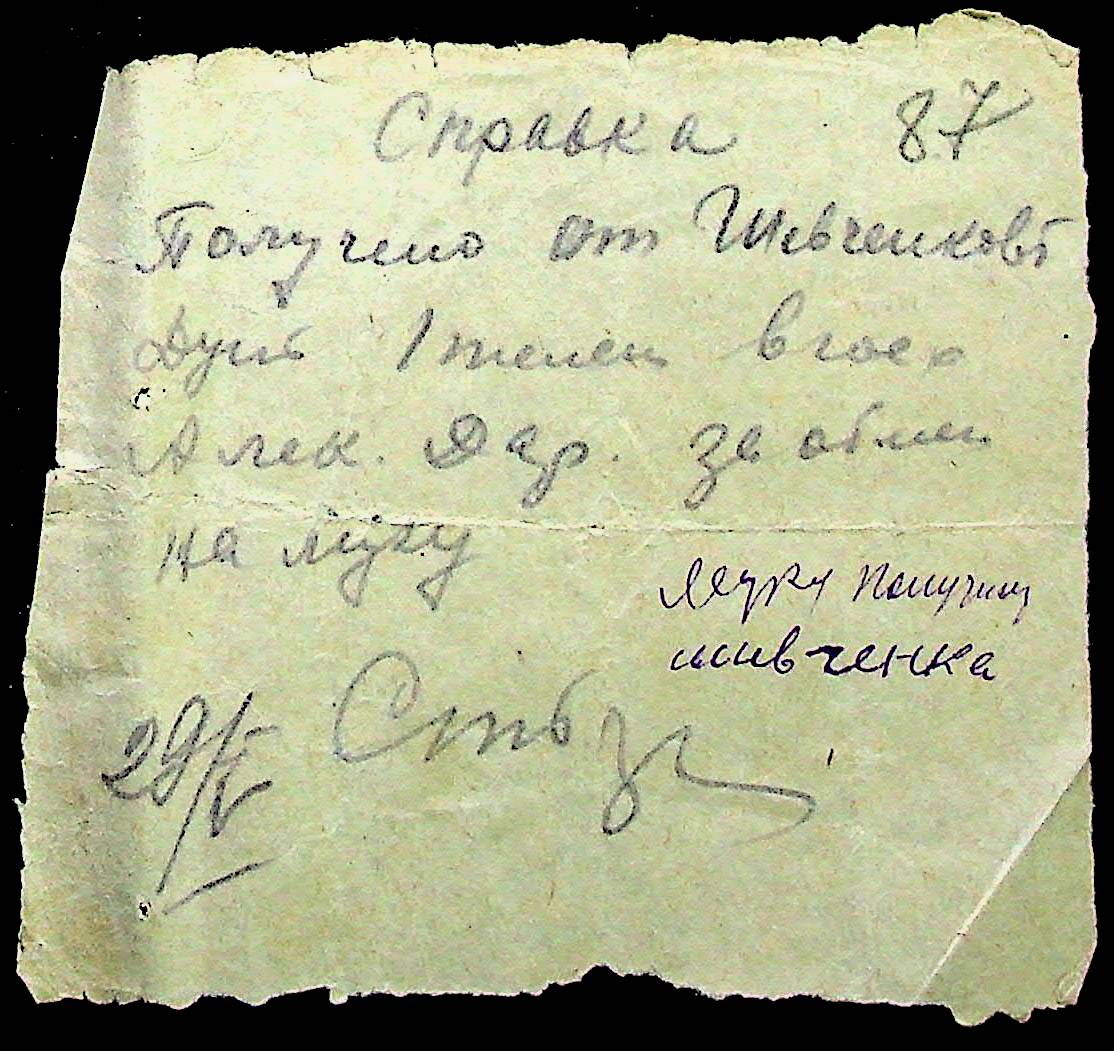 Справка 87
Получено от Шевченковой
1 телен в госх
Алек. Дар. за обмен
на муку
Муку получил
шивченка
29/V